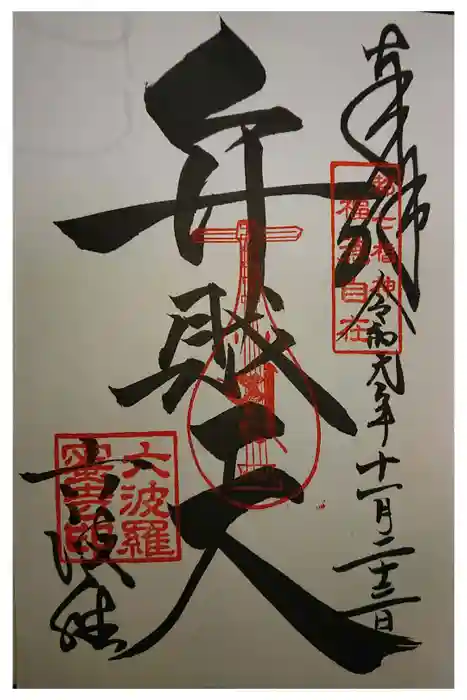 奉拝
都七福神
福徳自在
令和元年十一月二十二日
弁財天
六波羅
蜜寺印